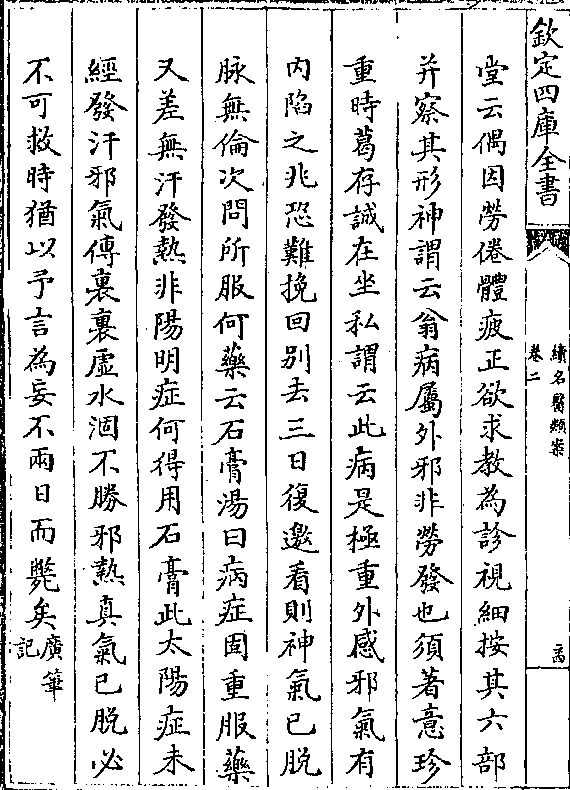 欽定四庫全書
續名醫類案
卷二
堂云偶因勞倦體疲正欲求教為診視細按其六部
并察其形神謂云翁病屬外邪非勞發也須著意珍
重時葛存誠在坐私謂云此病是極重外感邪氣有
内陷之兆恐難挽回别去三日復邀看則神氣已脱
脉無倫次問所服何藥云石膏湯曰病症固重服藥
又差無汗發熱非陽明症何得用石膏此太陽症未
經發汗邪氣傳裏裏虛水涸不勝邪熱真氣已脱必
不可救時猶以予言為妄不兩日而斃矣廣筆
記